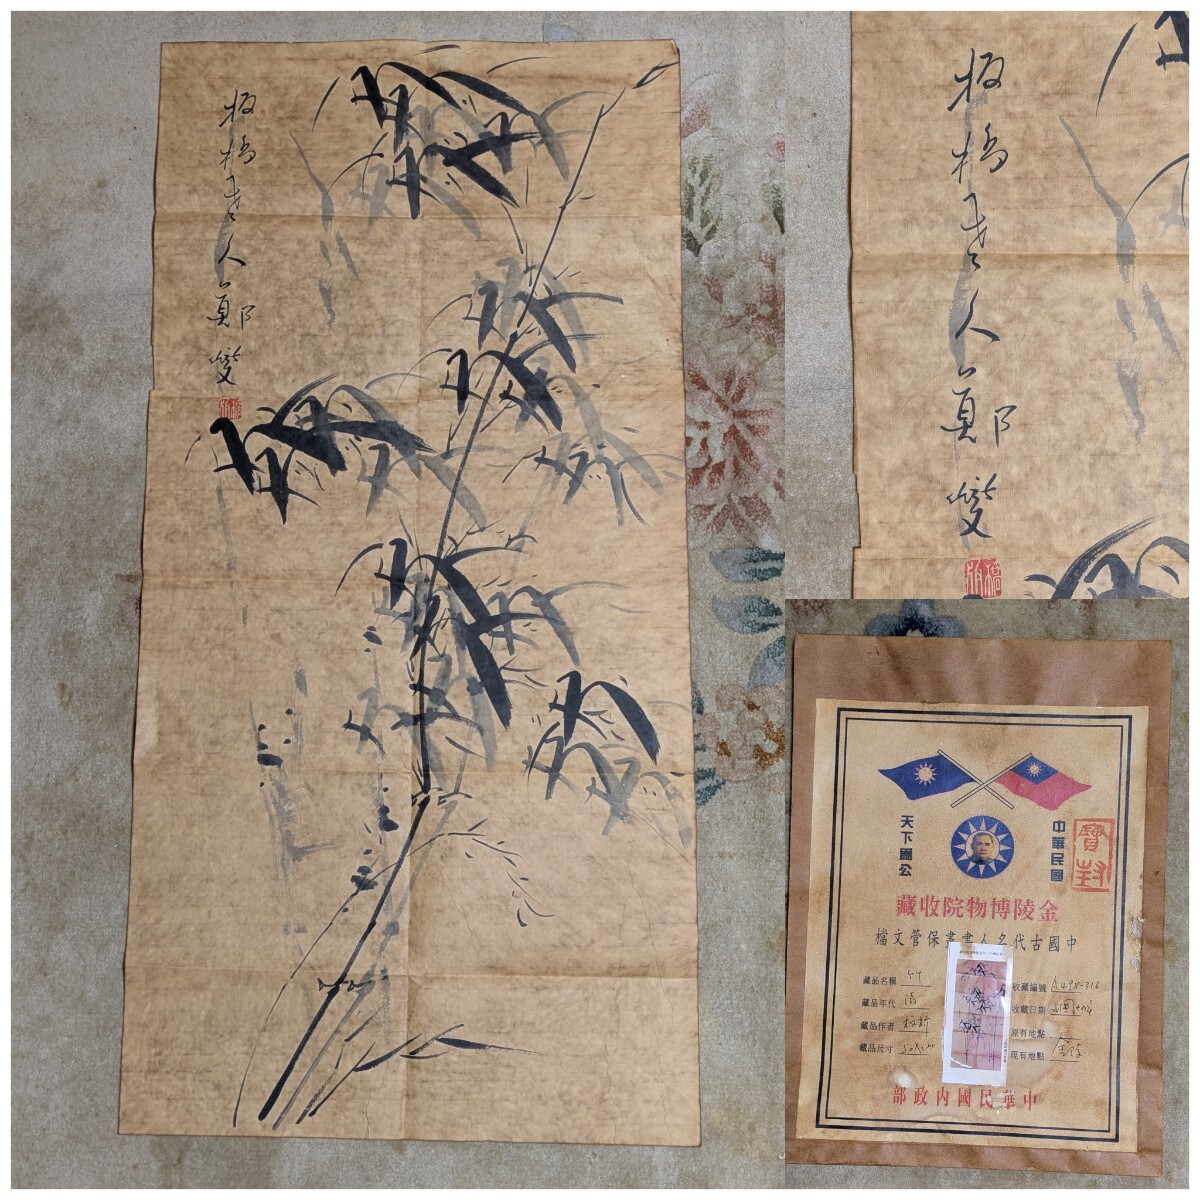 板橋老人鄭燮
板橋
板橋老人鄭燮
板橋
天下為公
中華民國
寶封
藏收院物博陵金
檔文管保畫書人名代古國中
藏品名稱 竹
藏品年代 清
藏品作者 板橋
藏品尺寸 50X100
收藏編號
收藏日期
原有地點
現有地點 金陵
部政內國民華中